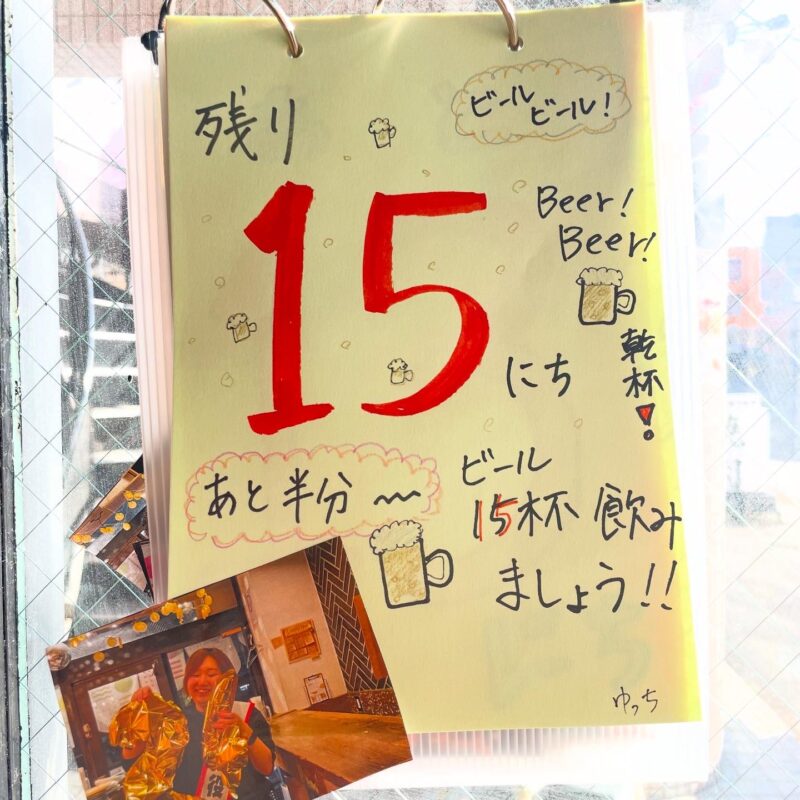 残り
ビール
ビール!
15
Beer!
Beer!
乾杯!
にち
あと半分〜
ビール
15杯 飲み
ましょう!!
ゆっち